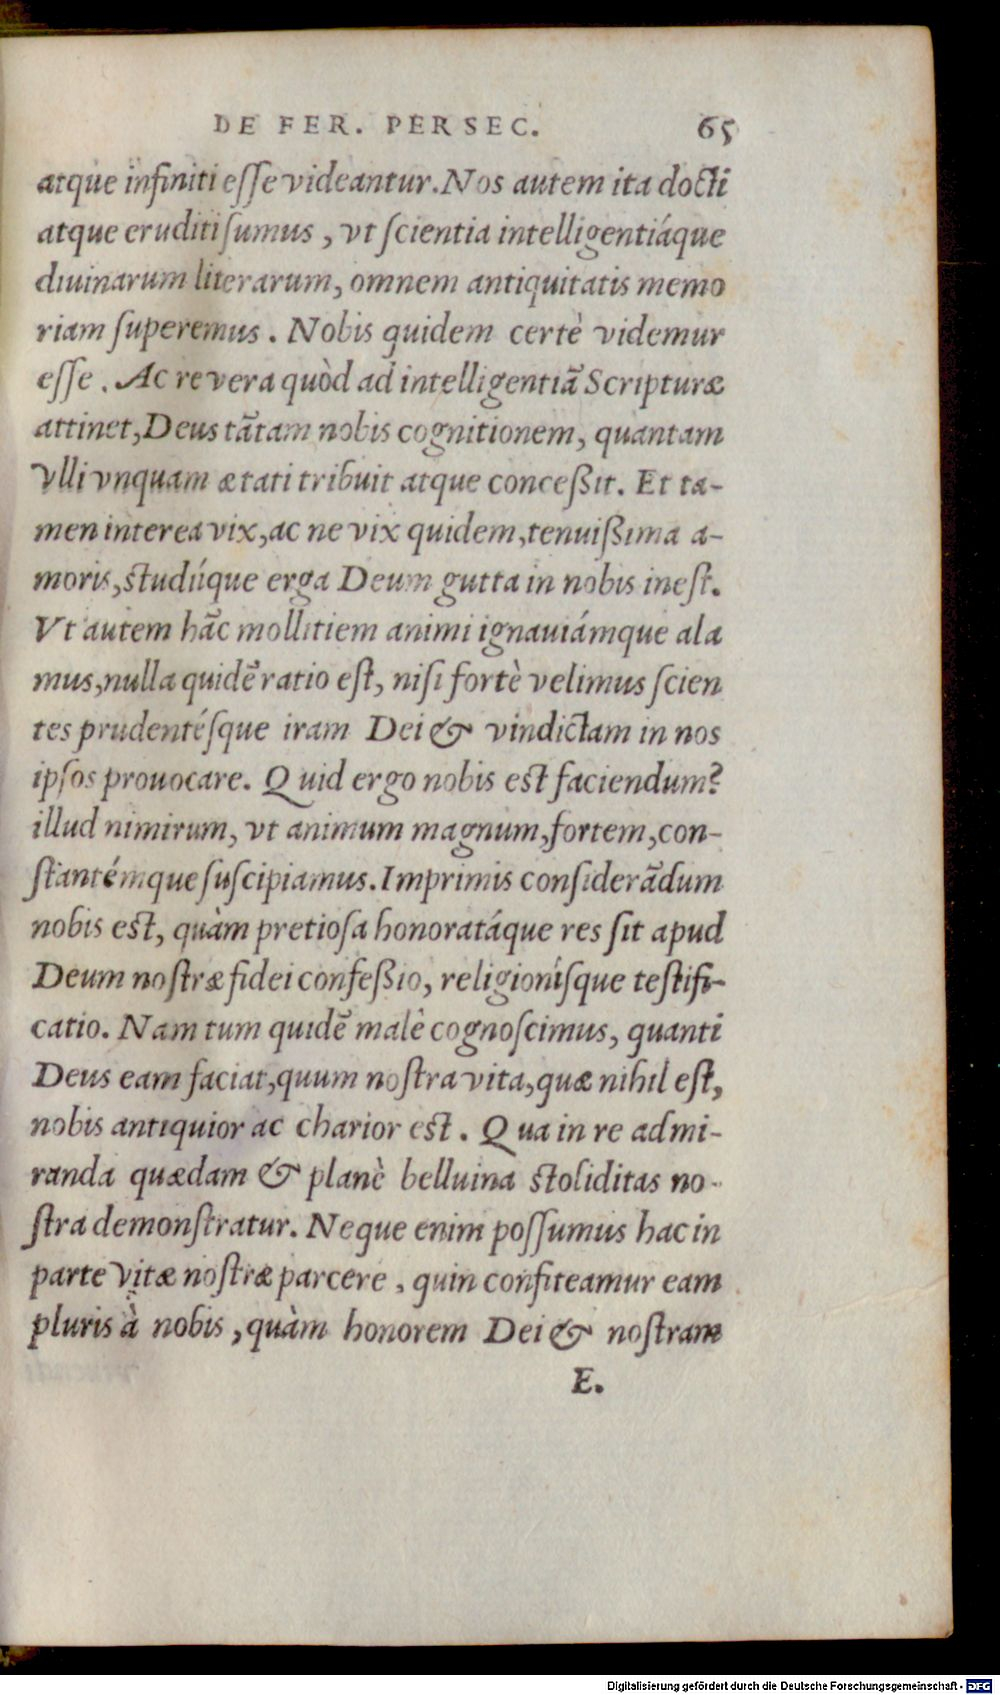 DE FER. PERSEC. 65
atque infiniti eſſe videantur. Nos autem ita docti
atque eruditi ſumus, vt ſcientia intelligentiáque
diuinarum literarum, omnem antiquitatis memo
riam ſuperemus. Nobis quidem certè videmur
eſſe. Ac revera quòd ad intelligentiā Scripturæ
attinet, Deus tātam nobis cognitionem, quantam
vlli vnquam ætati tribuit atque conceßit. Et ta-
men interea vix, ac ne vix quidem, tenuißima a-
moris, ſtudiíque erga Deum gutta in nobis ineſt.
Vt autem hāc mollitiem animi ignauiámque ala
mus, nulla quidē ratio eſt, niſi fortè velimus ſcien
tes prudentéſque iram Dei & vindictam in nos
ipſos prouocare. Quid ergo nobis eſt faciendum?
illud nimirum, vt animum magnum, fortem, con-
ſtantémque ſuſcipiamus. Imprimis conſiderādum
nobis eſt, quàm pretioſa honoratáque res ſit apud
Deum noſtræ fidei confeßio, religioníſque teſtifi-
catio. Nam tum quidē malè cognoſcimus, quanti
Deus eam faciat, quum noſtra vita, quæ nihil eſt,
nobis antiquior ac charior eſt. Qua in re admi-
randa quædam & planè belluina ſtoliditas no-
ſtra demonſtratur. Neque enim poſſumus hac in
parte vitæ noſtræ parcere, quin confiteamur eam
pluris à nobis, quàm honorem Dei & noſtram
E.
Digitalisierung gefördert durch die Deutsche Forschungsgemeinschaft - DFG